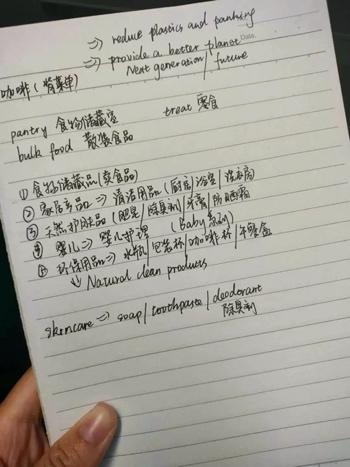 ⇒ reduce plastics and
⇒ provide a better planet
Date.
Next generation / future
咖啡 (背菜单)
pantry 食物储藏室 treat 零食
bulk food 散装食品
① 食物储藏品 (卖食品)
② 家居产品 ⇒ 清洁用品 (厨房/浴室/洗衣房
③ 天然护肤品 (肥皂/除臭剂/牙膏/防晒霜
④ 婴儿 ⇒ 婴儿护理 (Baby系列)
⑤ 环保用品 ⇒ 水瓶/包装杯/咖啡杯/午餐盒
↓ Natural clean products
skincare ⇒ soap / toothpaste / deodorant
除臭剂